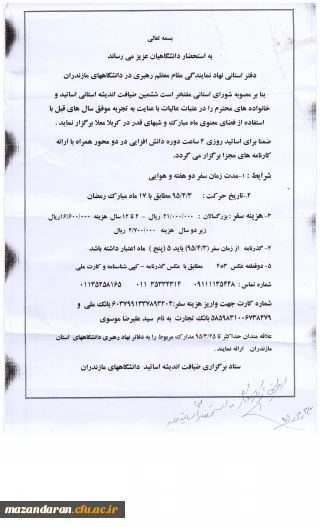 بسمه تعالی
به استحضار دانشگاهیان عزیز می رساند
دفتر استانی نهاد نمایندگی مقام معظم رهبری در دانشگاههای مازندران
بنا بر مصوبه شورای استانی مفتخر است ششمین ضیافت اندیشه استانی اساتید و
خانواده های محترم را در عتبات عالیات با عنایت به تجربه موفق سال های قبل با
استفاده از فضای معنوی ماه مبارک و شبهای قدر در کربلا معلا برگزار نماید .
ضمنا برای اساتید روزی ۴ ساعت دوره دانش افزایی در دو محور همراه با ارائه
کارنامه های مجزا برگزار می گردد.
شرایط : ۱-مدت زمان سفر دو هفته و هوایی
۲-تاریخ حرکت : ۹۵/۴/۳ مطابق با ۱۷ ماه مبارک رمضان
۳- هزینه سفر : بزرگسالان : ۲۱/۰۰۰/۰۰۰ ریال - ۲ تا ۱۲ سال هزینه ۱۶/۶۰۰/۰۰۰ریال
زیر دو سال هزینه ۲/۷۰۰/۰۰۰ ریال
۴- گذرنامه از زمان سفر (۹۵/۴/۳) باید ۵ (پنج ) ماه اعتبار داشته باشد
۵- دوقطعه عکس ۳×۴ مطابق با عکس گذرنامه - کپی شناسنامه و کارت ملی
شماره تماس : ۰۹۱۱۱۱۳۵۴۴۸ ۰۱۱ ۳۵۳۳۴۳۱۴ ۰۱۱۳۵۲۵۸۱۶۵
شماره کارت جهت واریز هزینه سفر: ۶۰۳۷۹۹۱۳۳۷۸۹۳۲۰۴ بانک ملی و
۵۸۵۹۸۳۱۰۰۶۷۳۸۴۷۹ بانک تجارت به نام سید علیرضا موسوی
علاقه مندان حداکثر تا ۹۵/۳/۲۵ مدارک مربوط را به دفاتر نهاد رهبری دانشگاههای استان
مازندران ارائه نمایند .
ستاد برگزاری ضیافت اندیشه اساتید دانشگاههای مازندران
mazandaran.cfu.ac.ir